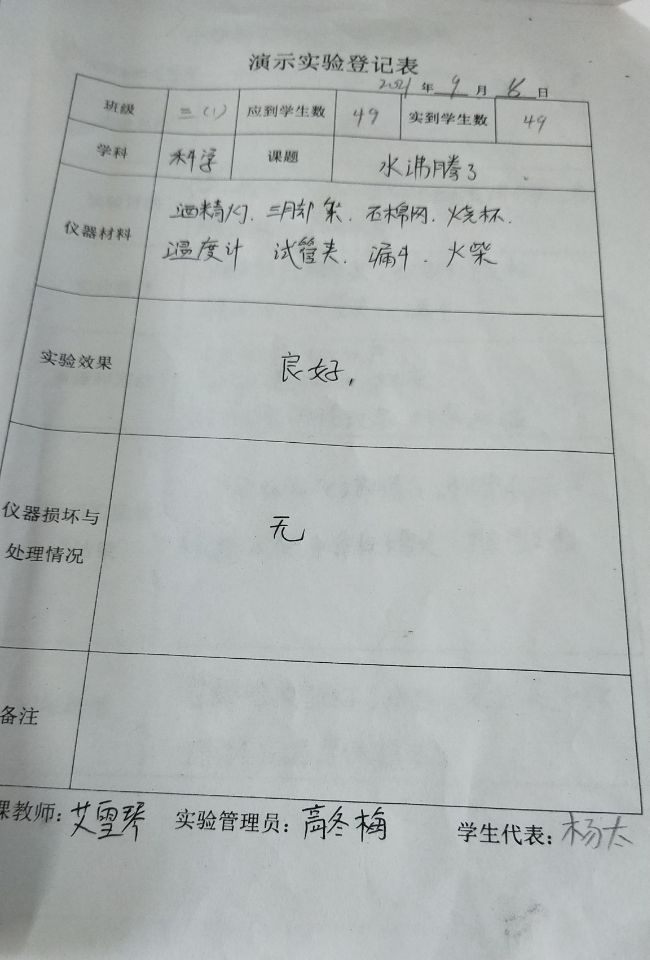 演示实验登记表
2021年9月15日
班级 三(1) 应到学生数 49 实到学生数 49
学科 科学 课题 水沸腾了
仪器材料 酒精灯、三脚架、石棉网、烧杯、
温度计 试管夹、漏斗、火柴
实验效果 良好,
仪器损坏与
处理情况
无
备注
课教师:艾雪琴 实验管理员:高冬梅 学生代表:杨太